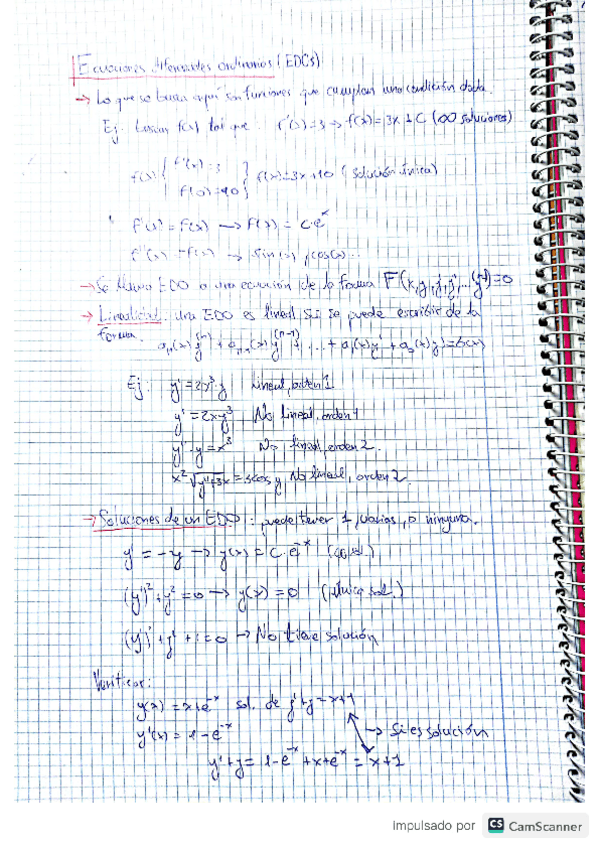 Ecuaciones diferenciales ordinarias (EDOs)
→ Lo que se busca aquí son funciones que cumplan una condición dada.
Ej: buscar f(x) tal que: f'(x)=3 → f(x)=3x+C (∞ soluciones)
f(x) { f'(x)=3
f(0)=10 } f(x)=3x+10 (solución única)
f'(x) = f(x) → f(x) = C·eˣ
f''(x) = -f(x) → sin(x), cos(x)...
→ Se llama EDO a una ecuación de la forma F(x,y,y',y'',...,y⁽ⁿ⁾)=0
→ Linealidad: una EDO es lineal si se puede escribir de la
forma: aₙ(x)y⁽ⁿ⁾ + aₙ₋₁(x)y⁽ⁿ⁻¹⁾+...+ a₁(x)y' + a₀(x)y = b(x)
Ej: y' = 2x³y lineal, orden 1
y' = 2xy³ No lineal, orden 1
y''·y = x³ No lineal, orden 2.
x²√y''+3x = cos y No lineal, orden 2.
→ Soluciones de un EDO: puede tener 1, varias, o ninguna.
y' = -y → y(x) = C·e⁻ˣ (∞ sol.)
(y')² + y² = 0 → y(x) = 0 (única sol.)
(y')² + y² + 1 = 0 → No tiene solución
Verificar:
y(x) = x+e⁻ˣ sol. de y'+y = x+1
y'(x) = 1-e⁻ˣ → Si es solución
y'+y = 1-e⁻ˣ+x+e⁻ˣ = x+1
Impulsado por CS CamScanner